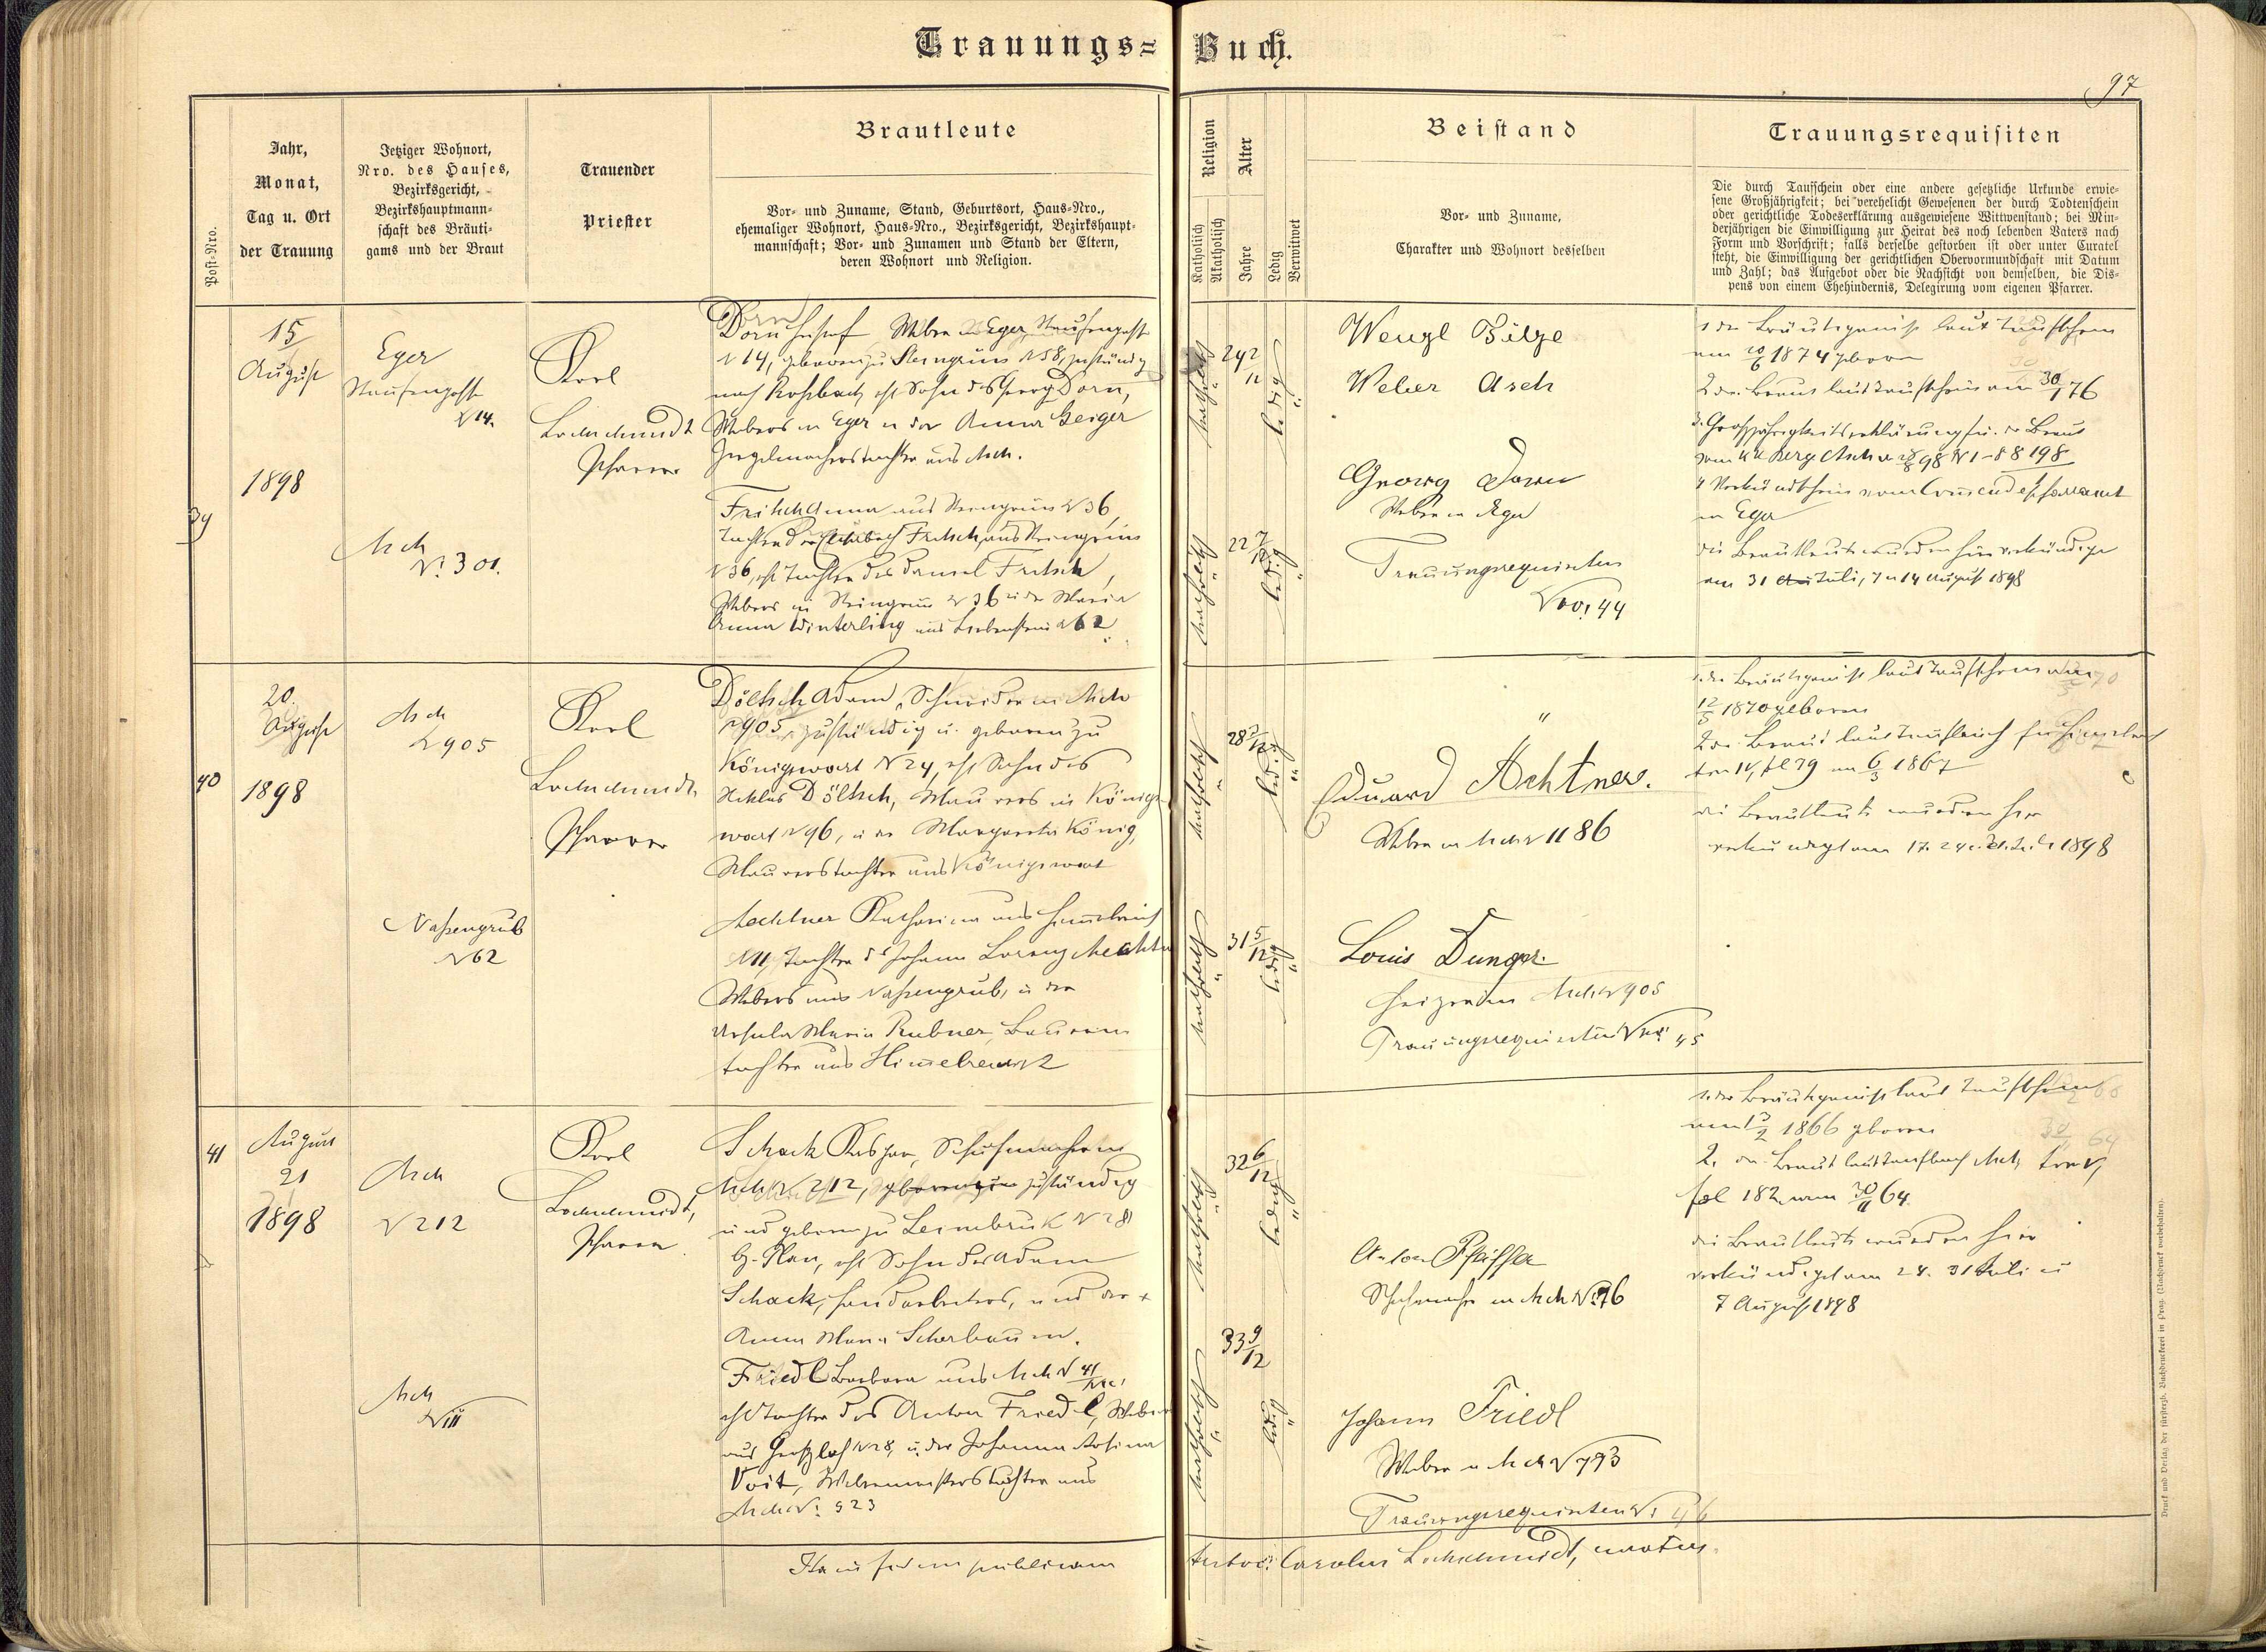 Trauungs= Buch.
97
Post-Nro.
Jahr,
Monat,
Tag u. Ort
der Trauung
Jetziger Wohnort,
Nro. des Hauses,
Bezirksgericht,
Bezirkshauptmann-
schaft des Bräuti-
gams und der Braut
Trauender
Priester
Brautleute
Vor- und Zuname, Stand, Geburtsort, Haus-Nro.,
ehemaliger Wohnort, Haus-Nro., Bezirksgericht, Bezirkshaupt-
mannschaft; Vor- und Zunamen und Stand der Eltern,
deren Wohnort und Religion.
Religion
Katholisch
Akatholisch
Alter
Jahre
Ledig
Verwitwet
Beistand
Vor- und Zuname,
Charakter und Wohnort desselben
Trauungsrequisiten
Die durch Taufschein oder eine andere gesetzliche Urkunde erwie-
sene Großjährigkeit; bei verehelicht Gewesenen der durch Todtenschein
oder gerichtliche Todeserklärung ausgewiesene Wittwenstand; bei Min-
derjährigen die Einwilligung zur Heirat des noch lebenden Vaters nach
Form und Vorschrift; falls derselbe gestorben ist oder unter Curatel
steht, die Einwilligung der gerichtlichen Obervormundschaft mit Datum
und Zahl; das Aufgebot oder die Nachsicht von demselben, die Dis-
pens von einem Ehehindernis, Delegirung vom eigenen Pfarrer.
39
15
August
1898
Eger
N 14.
Asch
N: 301.
Karl
Pfarrer
Dorn Josef Weber in Eger
N 14, geboren zu Steingrün N 58, zuständig
nach Roßbach, ehl Sohn des Georg Dorn,
Webers in Eger u der Anna Geiger
aus Asch.
Fritsch Anna aus Steingrün N 36,
Tochter der Fritsch aus Steingrün
N 36, ehl Tochter des Daniel Fritsch,
Webers in Steingrün N 36 u der Maria
Anna Winterling aus Liebenstein N 62
katholisch
24 2/12
ledig
katholisch
22 7/12
ledig
Wenzl Bilze
Weber Asch
Georg Dorn
Weber in Eger
Trauungsrequisiten
Nro: 44
1 der Bräutigam ist laut Taufschein
am 20/6 1874 geboren
2 die Braut laut Taufschein am 76
3. Großjährigkeitserklärung für die Braut
4 Verkündschein vom Comende pfarramt
in Eger
die Brautleute wurden hier verkündigt
am 31 Juli, 7 u 14 August 1898
40
20.
August
1898
Asch
N 905
Naßengrub
N 62
Karl
Pfarrer
Döltsch Adam, Schneider in Asch
N 905, zuständig u. geboren zu
Königswart N 24, ehl Sohn des
Niklas Döltsch, Maurers in Königs-
wart N 96, u der Margareta König,
Maurerstochter aus Königswart
Aechtner Katharina aus Himmelreich
N 11, Tochter des Johann Lorenz Aechtner
Webers aus Naßengrub, u der
Ursula Maria Rubner, Bauers
tochter aus Himelreich 2
katholisch
28 3/12
ledig
katholisch
31 5/12
ledig
Eduard Achtner.
Weber in Asch N 1186
Louis Dunger.
Heizer in Asch N 905
Trauungsrequisiten Nro: 45
1. der Bräutigam ist laut Taufschein am
12/5 1870 geboren
2 die Braut laut Taufbuch für Himelreich
tom IV, fol 79 am 6/3 1867
die Brautleute wurden hier
verkündigt am 17. 24 u. 31. Juli 1898
41
August
21
1898
Asch
N 212
Asch
N III
Karl
Pfarrer
Schack Kaspar, Schuhmacher in
Asch N 212, geboren zu zuständig
und geboren zu Leimbruk N 28
B. Plan, ehl Sohn des Adam
Schack, Handarbeiters, und der +
Anna Maria Scherbaum.
Friedl Barbara aus Asch N
ehl Tochter des Anton Friedl, Weber
aus N 28, u. der Johanna Rosina
Voit, Webermeisterstochter aus
Asch N: 523
katholisch
32 6/12
ledig
katholisch
33 9/12
ledig
Anton Pfeiffer
Schuhmacher in Asch
Johann Friedl
Weber in Asch N 793
Trauungsrequisiten N: 46
1. der Bräutigam ist laut Taufschein
1866 geboren
2. die Braut laut Taufbuch Asch, tom V,
fol 182 am 30/11 64.
die Brautleute wurden hier
verkündigt am 24. 31 Juli u
7 August 1898
Ita in fidem publicam
Carolus Lochschmidt,
Druck und Verlag der fürsterzb. Buchdruckerei in Prag. (Nachdruck vorbehalten).